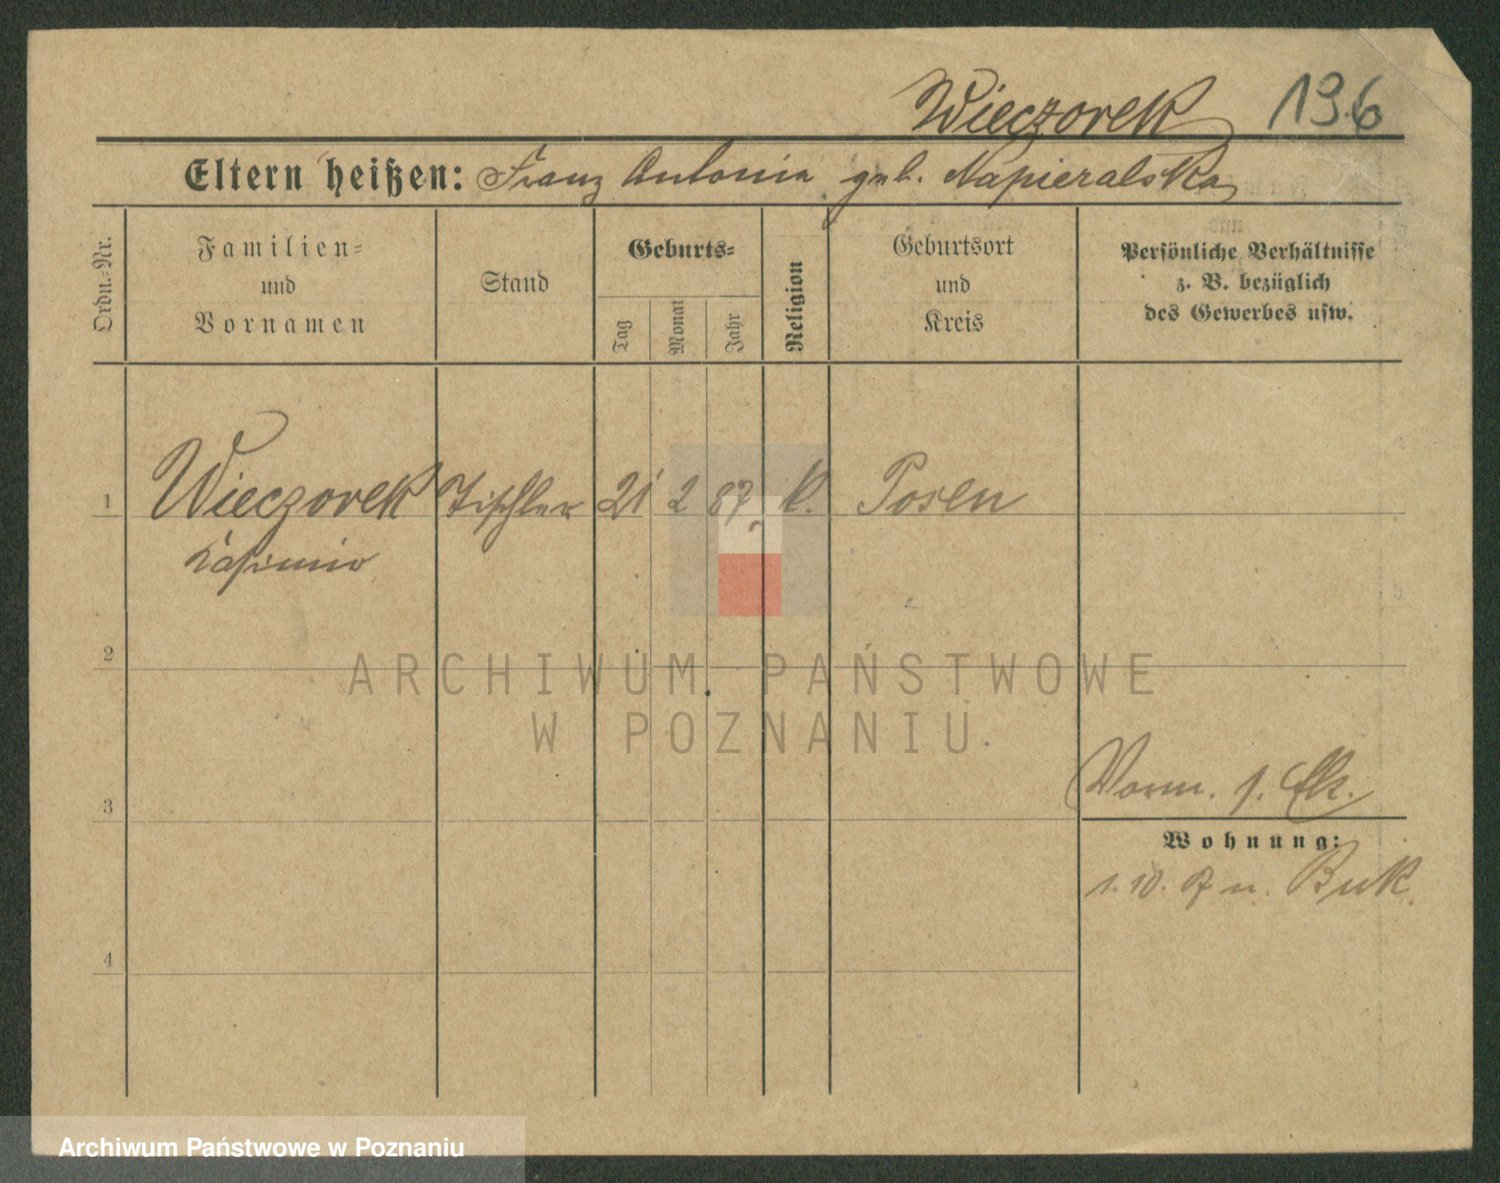 Wieczorek 196
Eltern heißen: Franz Antonia geb. Napieralska
Ordn.-Nr.
Familien-
und
Vornamen
Stand
Geburts-
Tag
Monat
Jahr
Religion
Geburtsort
und
Kreis
Persönliche Verhältnisse
z. B. bezüglich
des Gewerbes usw.
1 Wieczorek Tischler 21 2 87 k. Posen
Kasimir
2
ARCHIWUM PAŃSTWOWE
W POZNANIU
3
Wohnung:
1. 10. Buk
4
Archiwum Państwowe w Poznaniu